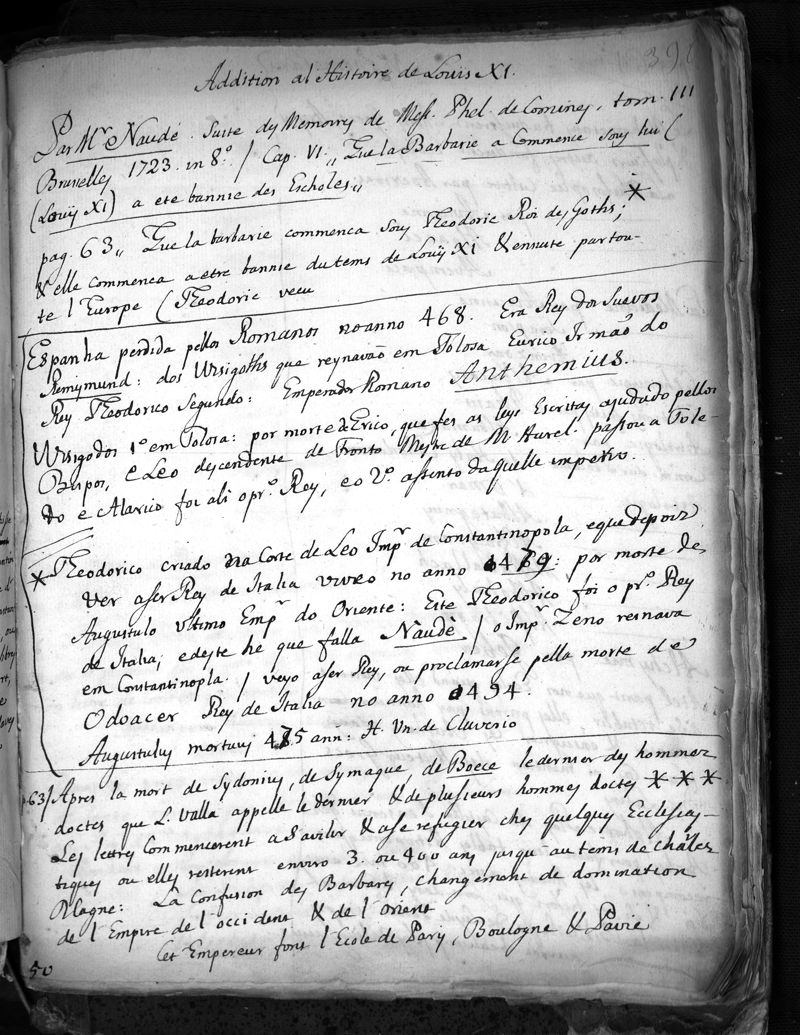 390
Addition al Histoire de Louis XI.
Par Mr. Naudé. Suite dy Memoiry de Mess. Phel. de Cominey. tom. III
Bruxelley 1723. in 8º. / Cap. VI. „ Que la Barbarie a Commence souy lui (
(Louÿ XI) a ete bannie des Escholes„
pag. 63„ Que la barbarie commenca souy Theodoric Roi dey Goths; *
& elle commenca a etre bannie du tems de Louÿ XI & ensuite partou-
te l'Europe (Theodoric vecu
Espanha perdida pellos Romanos no anno 468. Era Rey dos Suevos
Remymund: dos Wisigoths que reynavaõ em Tolosa Eurico Irmaõ do
Rey Theodorico Segundo: Emperador Romano Anthemius.
Wisigodos 1º em Tolosa: por morte de Erico, que fes as leys Escritas ajudado pellos
Bispos, e Leo descendente de Fronto Mestre de M. Aurel. passou a Tole-
do e Alarico foi ali o pr.º Rey, e o 2º. assento daquelle imperio.
* Theodorico criado na Corte de Leo Impr. de Constantinopola, e que depoiz
veo a ser Rey de Italia viveo no anno 479: por morte de
Augustulo ultimo Empr. do Oriente: Este Theodorico foi o pr.º Rey
de Italia; e deste he que falla Naudè / o Impr. Zeno reinava
em Constantinopla. / veyo a ser Rey, ou proclamarse pella morte de
Odoacer Rey de Italia no anno 494.
Augustuluy mortuuy 475 ann: H. Un. de Cluverio
63/ Apres la mort de Sydoniuy, de Symaque, de Boece le dernier dey hommez
doctes que L. Valla appelle le dernier & de plusieurs hommey doctey * * *
Ley lettrey Commencerent a s'avilir & a se refugier chey quelquey Ecclesiay-
tiquey ou elley resterent enviro 3. ou 400 any jusqu'au tems de Charles
Magne: La Confusion dey Barbary, changement de domination
de l'Empire de l'occident & de l'orient
Cet Empereur font l'Ecole de Pary, Boulogne & Pavie
50